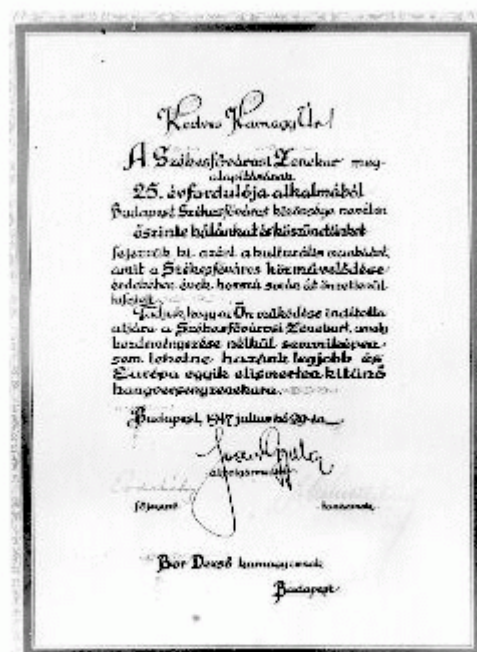 Kedves Karnagy Úr!
A Székesfővárosi Zenekar meg-
alapításának
25. évfordulója alkalmából
Budapest Székesfőváros közönsége nevében
őszinte hálánkat és köszönetünket
fejezzük ki azért a kulturális munkáért,
amit a Székesfőváros közművelődése
érdekében évek hosszú során át önzetlenül
kifejtett.
Tudjuk, hogy az Ön működése indította
útjára a Székesfővárosi Zenekart, amely
kezdeményezése nélkül semmiképen
sem lehetne hazánk legjobb és
Európa egyik elismerten kitűnő
hangversenyzenekara.
Budapest, 1947 július hó 29-én
alpolgármester
főjegyző tanácsnok
Bor Dezső karnagy úrnak
Budapest